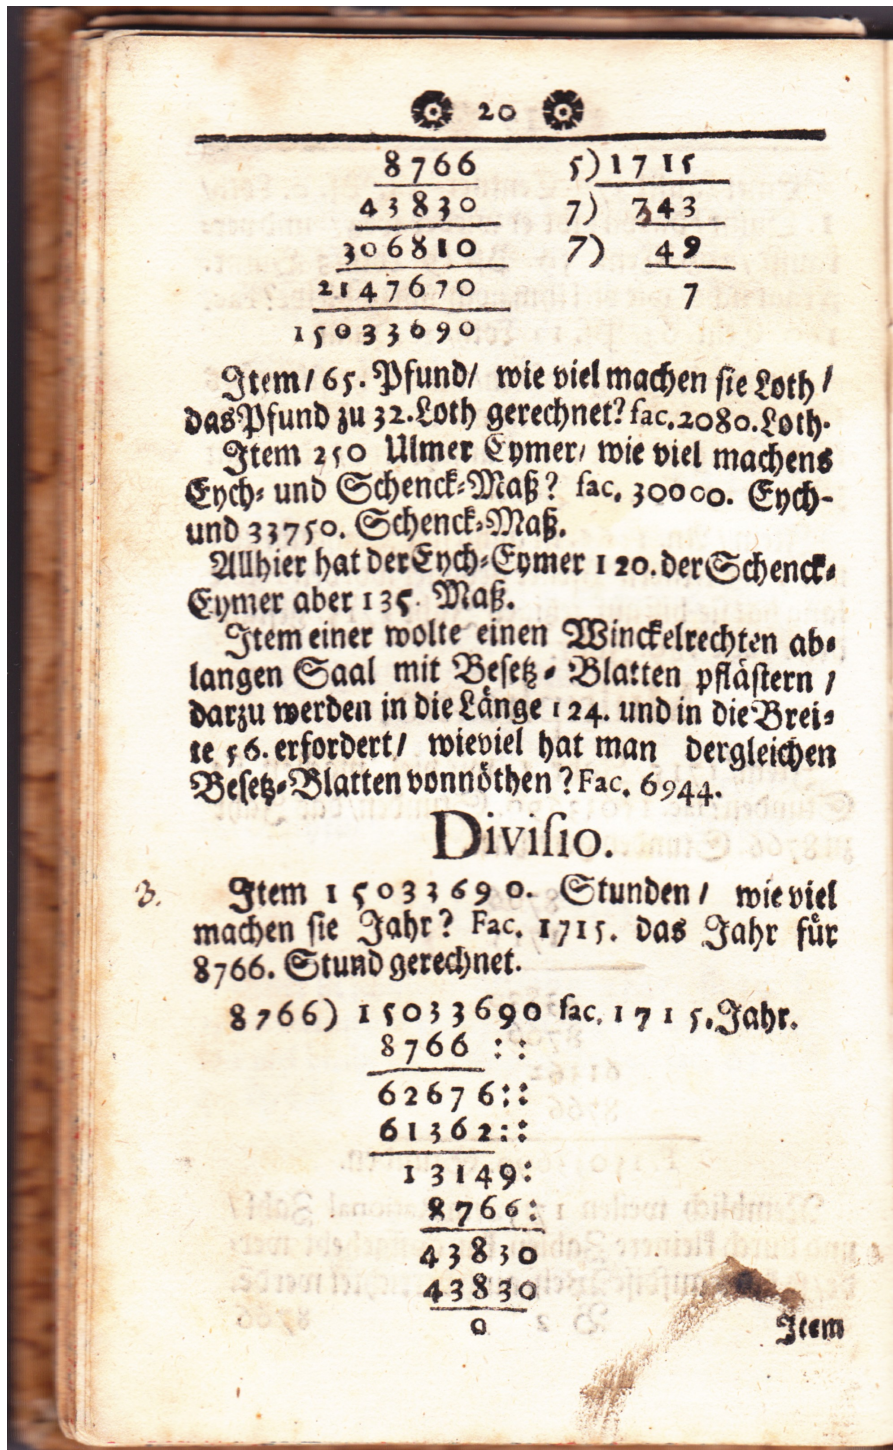 20
8766 5)1715
43830 7) 343
306810 7) 49
2147670 7
15033690
Item/ 65. Pfund/ wie viel machen sie Loth/
das Pfund zu 32. Loth gerechnet? fac. 2080. Loth.
Item 250 Ulmer Eymer/ wie viel machens
Eych- und Schenck-Maß? fac. 30000. Eych-
und 33750. Schenck-Maß.
Allhier hat der Eych-Eymer 120. der Schenck-
Eymer aber 135. Maß.
Item einer wolte einen Winckelrechten ab-
langen Saal mit Besetz-Blatten pflästern/
darzu werden in die Länge 124. und in die Brei-
te 56. erfordert/ wieviel hat man dergleichen
Besetz-Blatten vonnöthen? Fac. 6944.
Divisio.
3. Item 15033690. Stunden/ wie viel
machen sie Jahr? Fac. 1715. das Jahr für
8766. Stund gerechnet.
8766) 15033690 fac. 1715. Jahr.
8766 ::
62676::
61362::
13149:
8766:
43830
43830
0
Item